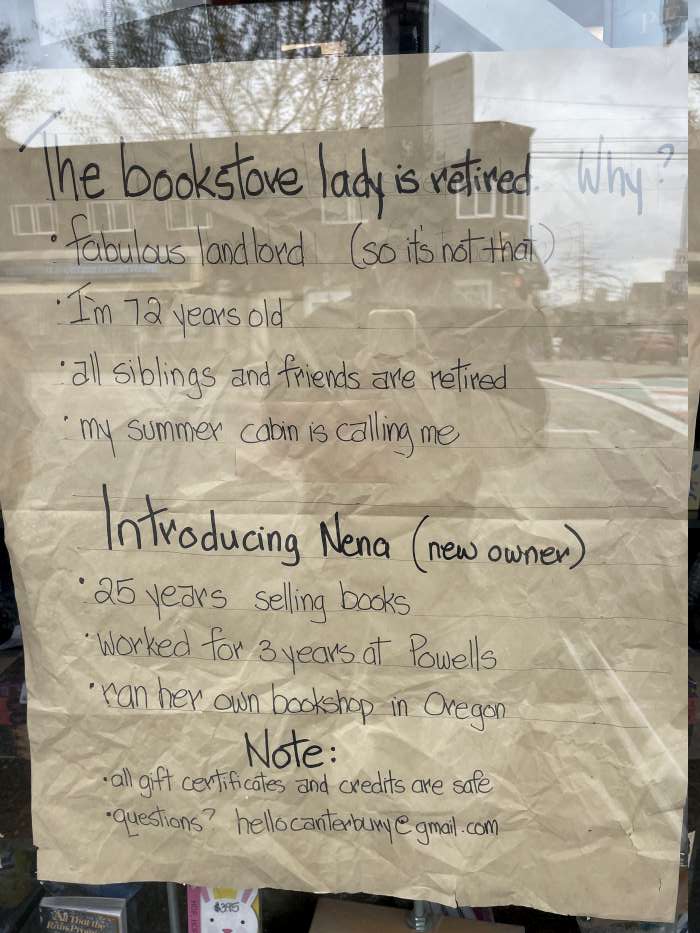 The bookstore lady is retired. Why?
• fabulous landlord (so it's not that)
• I'm 72 years old
• all siblings and friends are retired
• my summer cabin is calling me
Introducing Nena (new owner)
• 25 years selling books
• Worked for 3 years at Powells
• ran her own bookshop in Oregon
Note:
• all gift certificates and credits are safe
• questions? hellocanterbury@gmail.com
All That the
$3.95